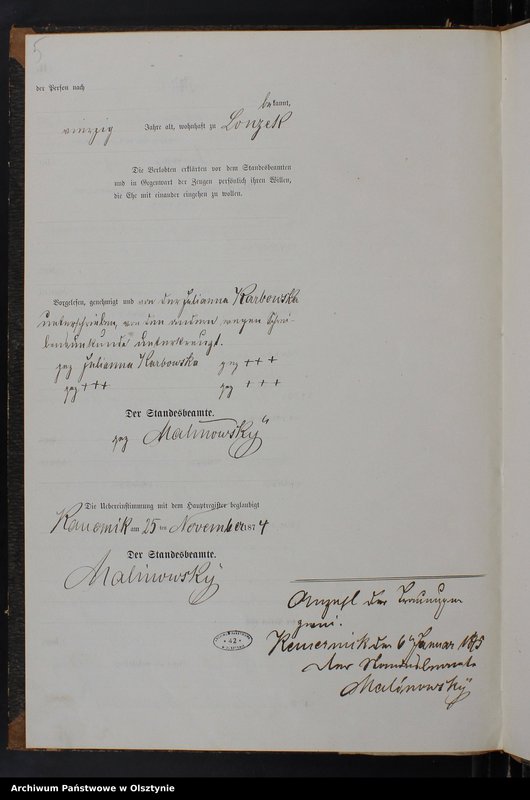 5
der Person nach
bekannt,
vierzig Jahre alt, wohnhaft zu Lonzek
Die Verlobten erklärten vor dem Standesbeamten
und in Gegenwart der Zeugen persönlich ihren Willen,
die Ehe mit einander eingehen zu wollen.
Vorgelesen, genehmigt und von der Julianna Karbowska
unterschrieben, von den andern wegen Schrei-
bensunkunde unterkreuzt.
gez Julianna Karbowska gez +++
gez +++ gez +++
Der Standesbeamte.
gez Malinowsky
Die Uebereinstimmung mit dem Hauptregister beglaubigt
am 25 ten November 1874
Der Standesbeamte.
Malinowsky
Anzahl der Trauungen
zwei.
den 6 Januar 1875
Der Standesbeamte
Malinowsky
42
Archiwum Państwowe w Olsztynie